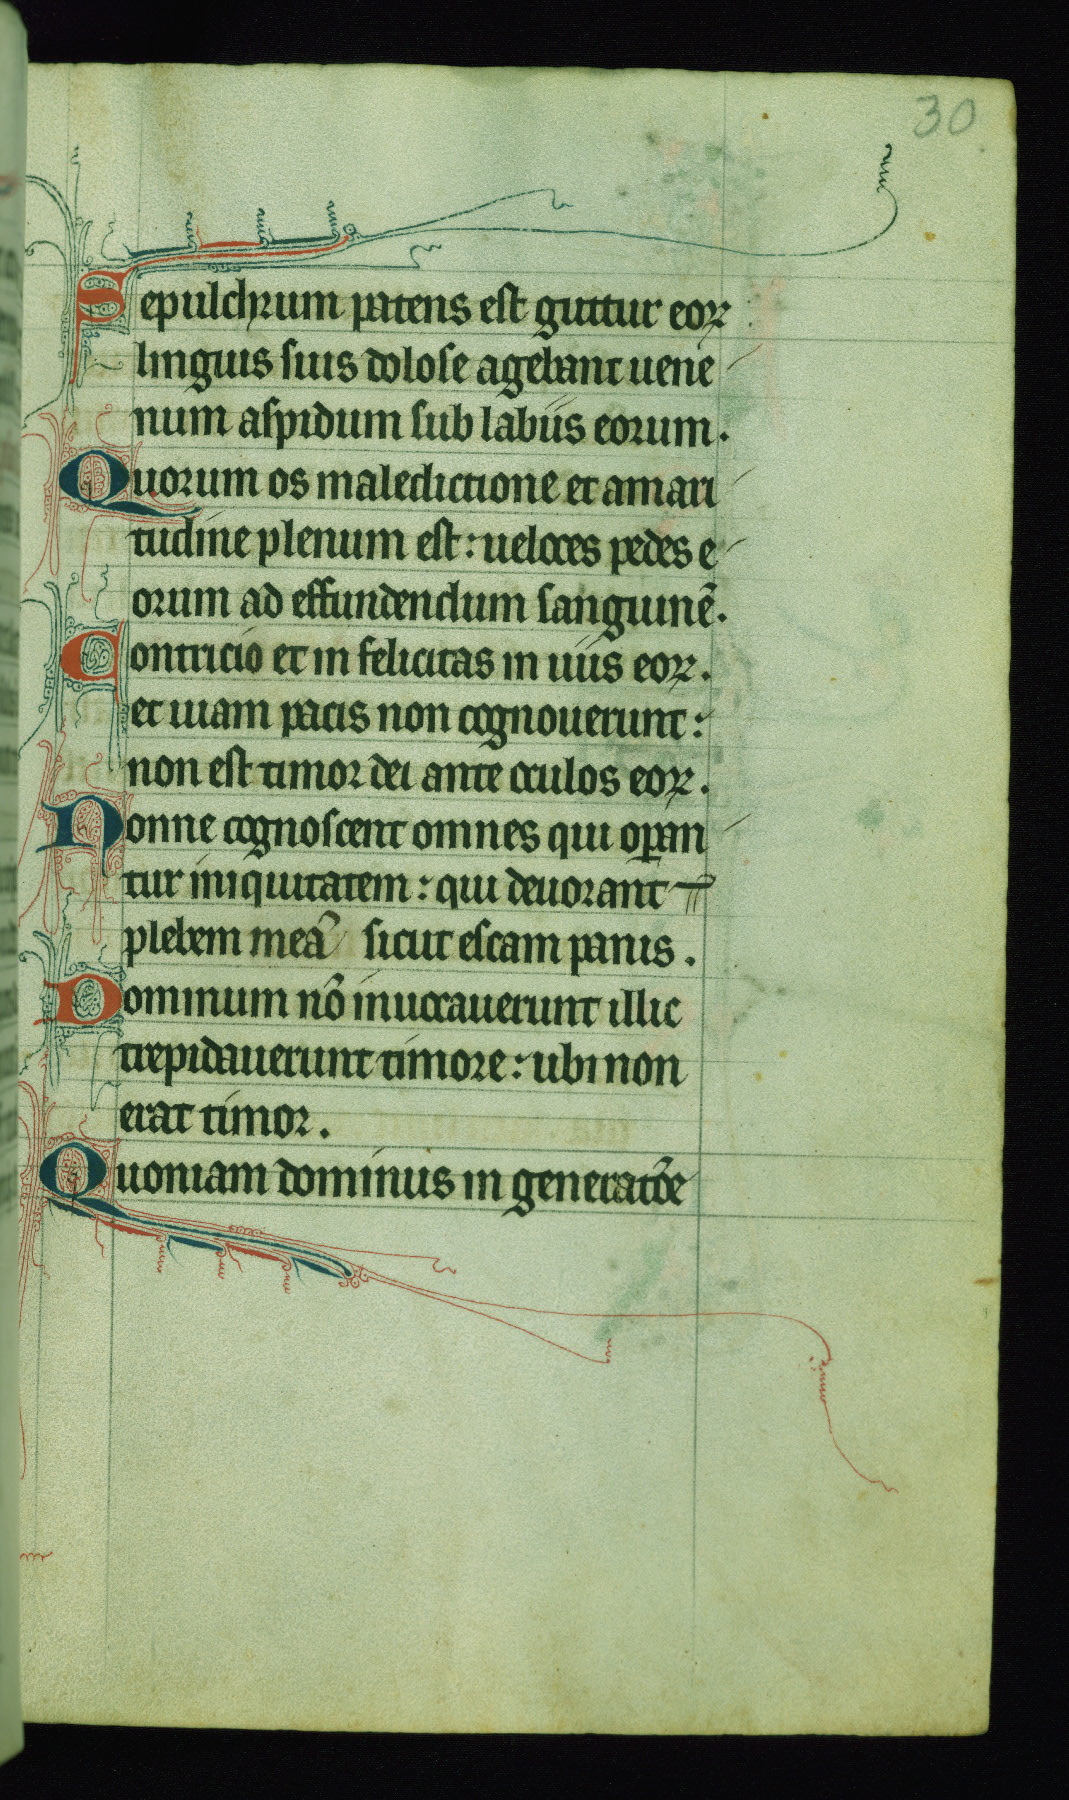 30
Sepulchrum patens est guttur eoꝝ
linguis suis dolose agebant uene
num aspidum sub labiis eorum.
Quorum os maledictione et amari
tudine plenum est: ueloces pedes e
orum ad effundendum sanguinē.
Contricio et in felicitas in uiis eoꝝ.
et uiam pacis non cognouerunt:
non est timor dei ante oculos eoꝝ.
Nonne cognoscent omnes qui oꝑan
tur iniquitatem: qui deuorant
plebem meā sicut escam panis.
Dominum nō inuocauerunt illic
trepidauerunt timore: ubi non
erat timor.
Quoniam dominus in generatōe